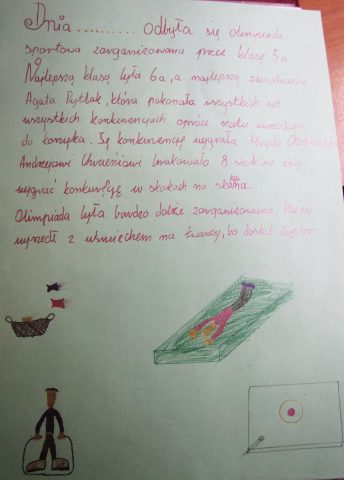 Dnia .......... odbyła się olimpiada
sportowa zorganizowana przez klasę 5a.
Najlepszą klasą była 6a, a najlepszą zawodniczką
Agata Pytlak, która pokonała wszystkich we
wszystkich konkurencjach oprócz rzutu woreczkiem
do koszyka. Tę konkurencję wygrała Magda
Andrzejowi Chwieśniowi brakowało 8 sek żeby
wygrać konkurencję w skokach na skakance.
Olimpiada była bardzo dobrze zorganizowana. Każdy
wyszedł z uśmiechem na twarzy, bo dostał